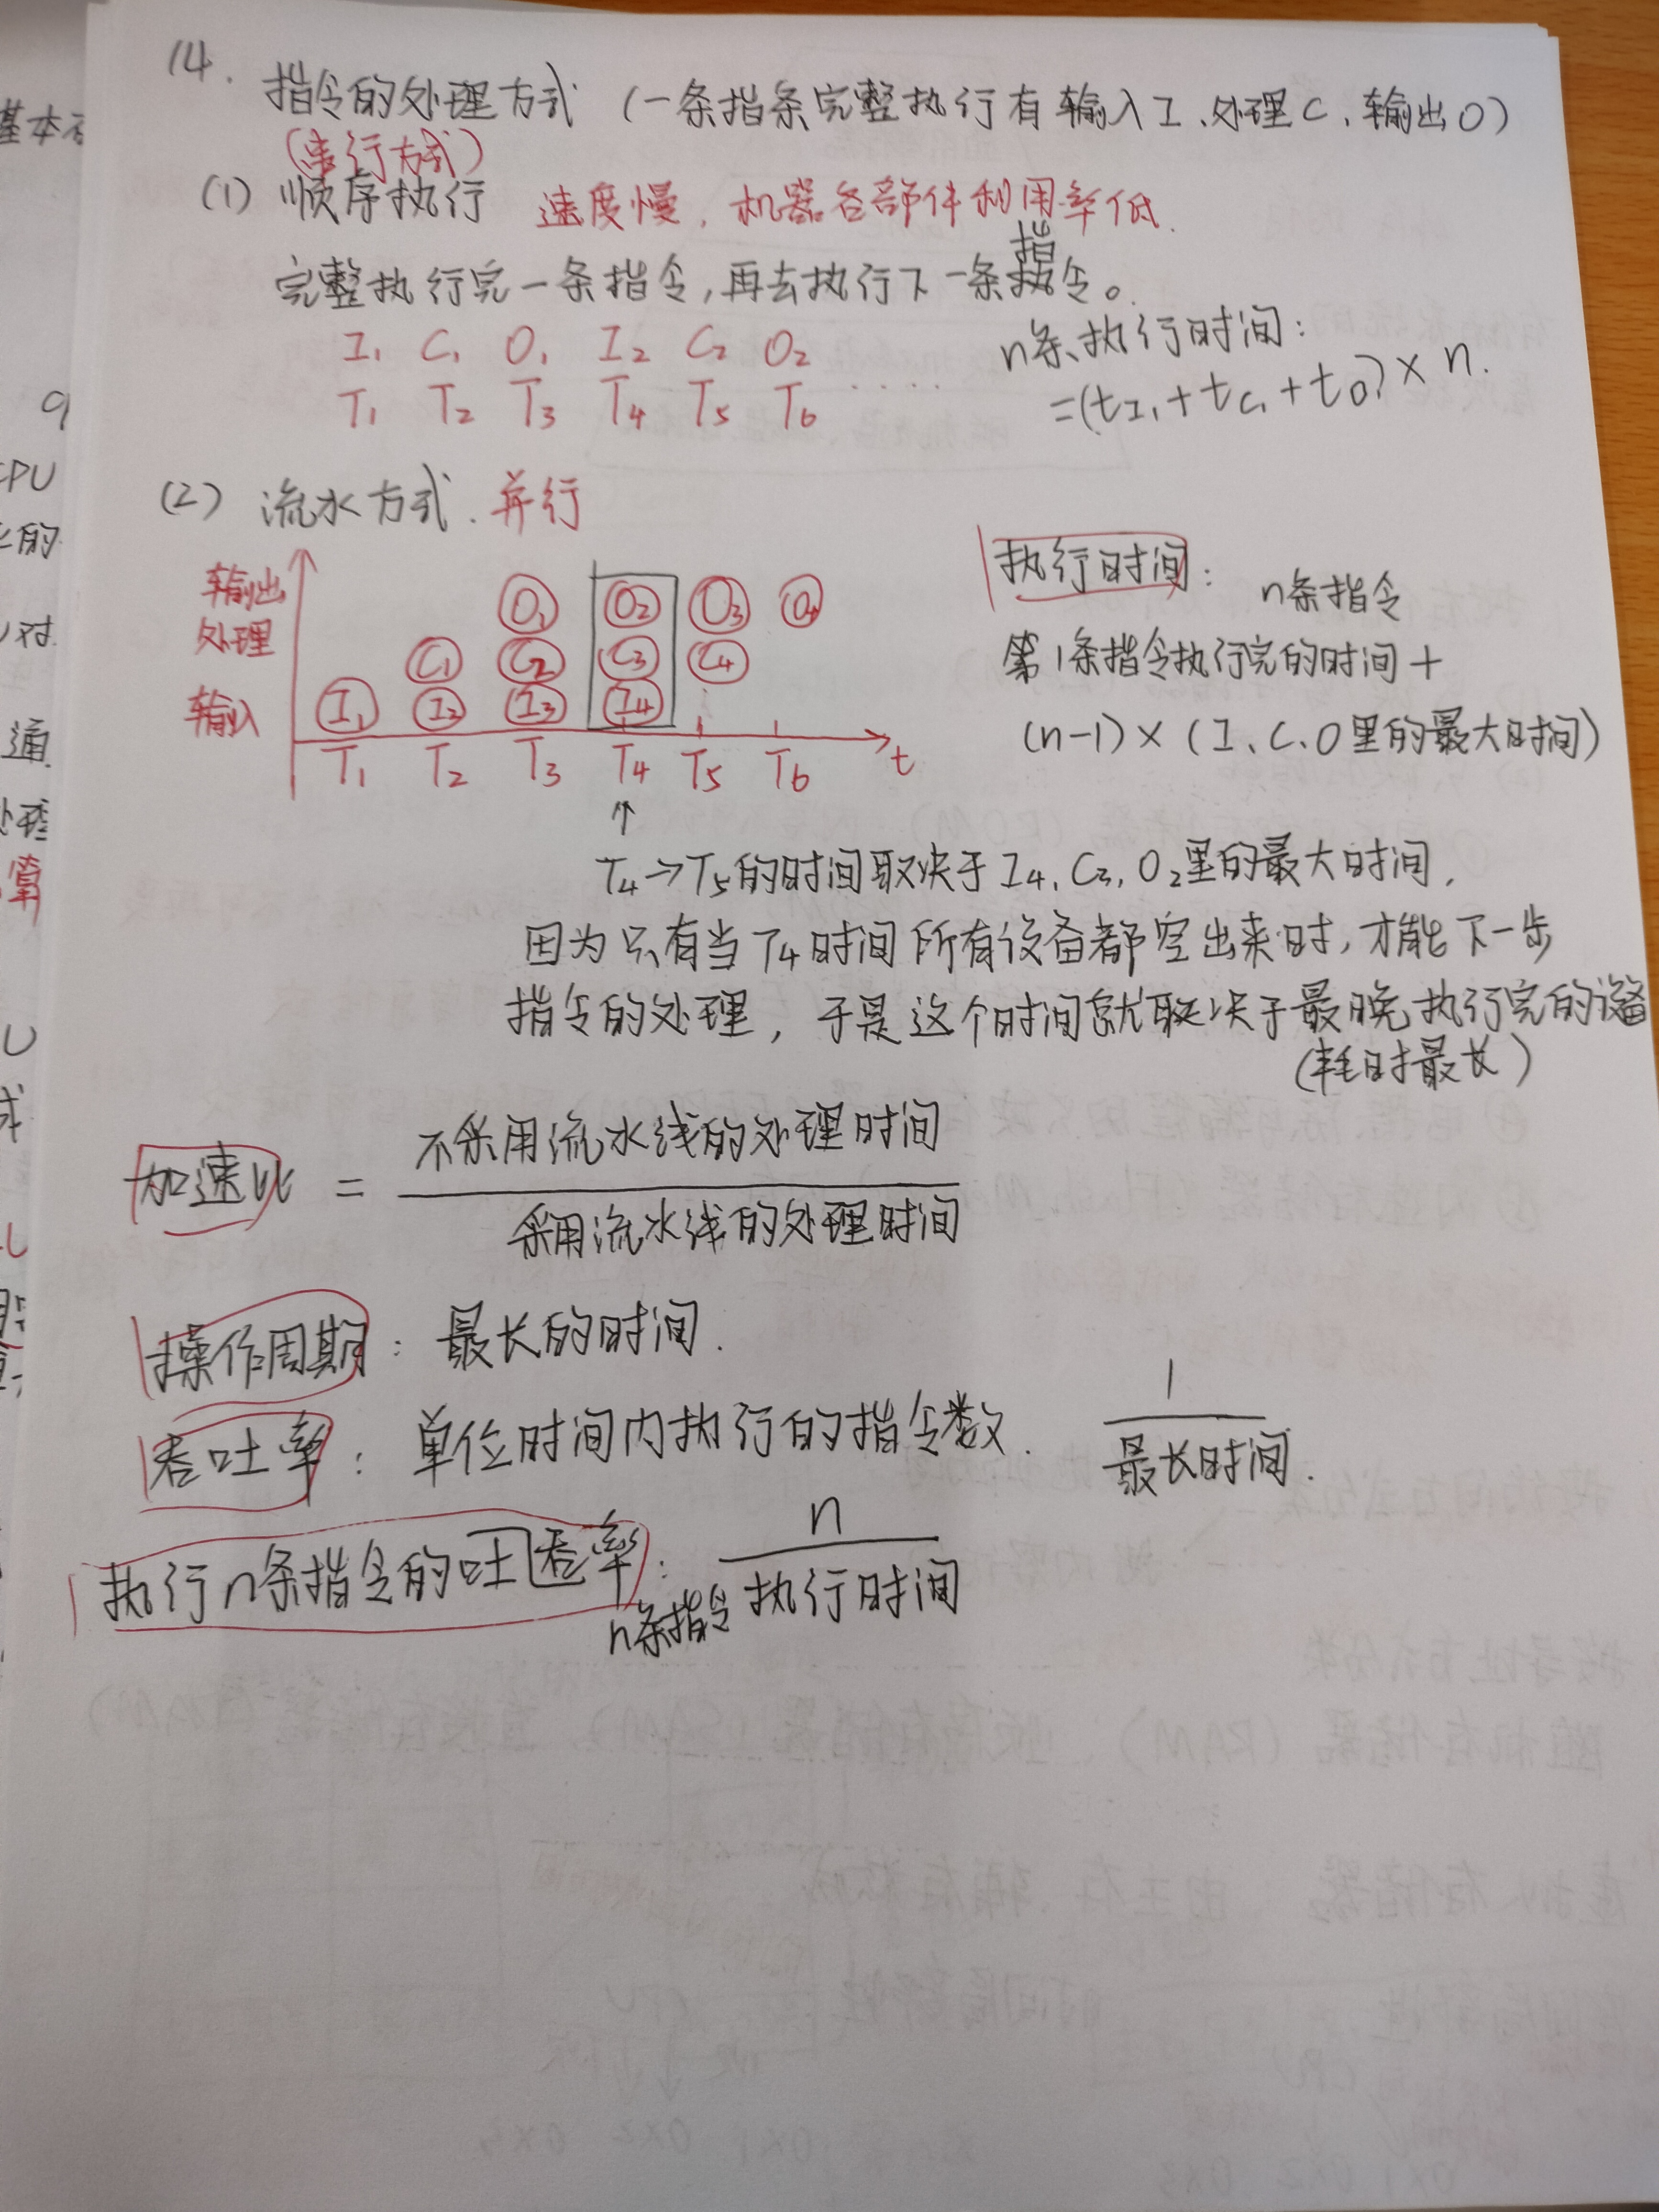 14.
指令的处理方式 (一条指条完整执行有输入I、处理C、输出O)
(串行方式)
(1) 顺序执行 速度慢,机器各部件利用率低.
完整执行完一条指令,再去执行下一条指令。
I₁ C₁ O₁ I₂ C₂ O₂
T₁ T₂ T₃ T₄ T₅ T₆ ····
n条执行时间:
=(tI₁+tC₁+tO₁)×n.
(2) 流水方式. 并行
输出 O₁ O₂ O₃ O₄
处理 C₁ C₂ C₃ C₄
输入 I₁ I₂ I₃ I₄
T₁ T₂ T₃ T₄ T₅ T₆ t
执行时间: n条指令
第1条指令执行完的时间+
(n-1)×(I、C、O里的最大时间)
↑
T₄→T₅的时间取决于I₄,C₃,O₂里的最大时间,
因为只有当T₄时间所有设备都空出来时,才能下一步
指令的处理,于是这个时间就取决于最晚执行完的设备
(耗时最长)
加速比 = 不采用流水线的处理时间
采用流水线的处理时间
操作周期: 最长的时间.
吞吐率: 单位时间内执行的指令数. 1
最长时间.
执行n条指令的吐吞率: n
n条指令执行时间
基本
CPU
的
对
通
处理
算
U